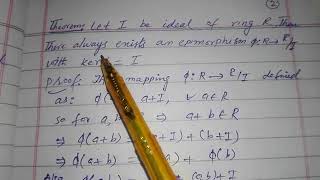 (2)
Theorem: Let I be ideal of ring R. Then
there always exists an epimorphism φ: R → R/I
with ker = I
Proof: The mapping φ: R → R/I defined
as: φ( a+I, ∀ a∈R
so for a, ⇒ a+b ∈ R
⇒ φ(a+b) = +I) + (b+I)
⇒ φ(a+b) = ) + φ(b)
(ab)+I